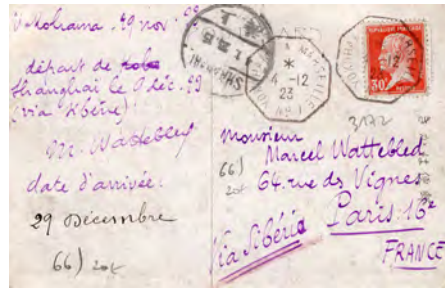 Yokohama. 29 nov. 23
départ de
Shanghaï le 9 déc. 23
(via Sibérie)
M. Wattebled
date d'arrivée:
29 Décembre
66) 20f
SHANGHAI
MARSEILLE
*
4-12
23
-12
23
30c
3172
Monsieur
Marcel Wattebled
64. rue des Vignes
Paris. 16e
FRANCE
Via Sibéria
66)
20f